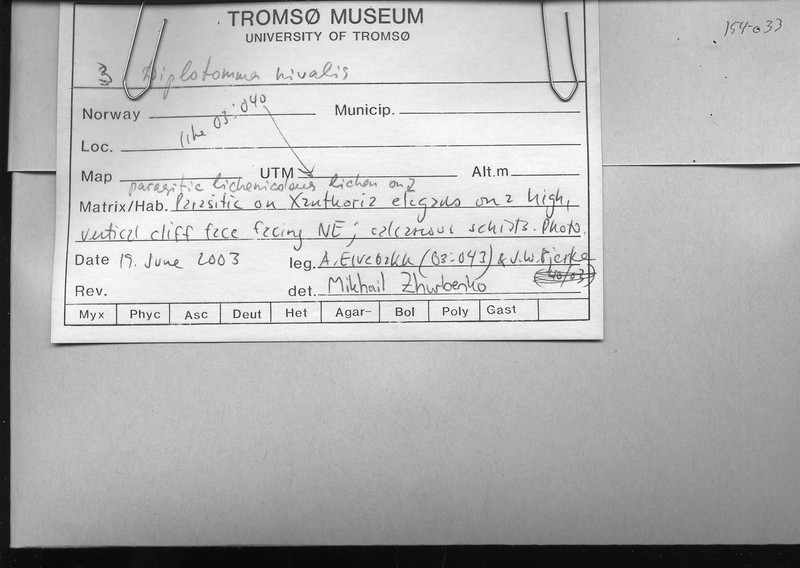 154-033
TROMSØ MUSEUM
UNIVERSITY OF TROMSØ
3 Diplotomma nivalis
Norway Municip.
like 03:040
Loc.
Map UTM Alt.m
parasitic lichenicolous lichen on
Matrix/Hab. Parasitic on Xanthoria elegans on a high,
vertical cliff face facing NE; calcareous schists. Photo.
Date 19. June 2003 leg. A. Elvebakk (03:043) & J.W. Bjerke
Rev. det. Mikhail Zhurbenko (40/03)
Myx Phyc Asc Deut Het Agar- Bol Poly Gast